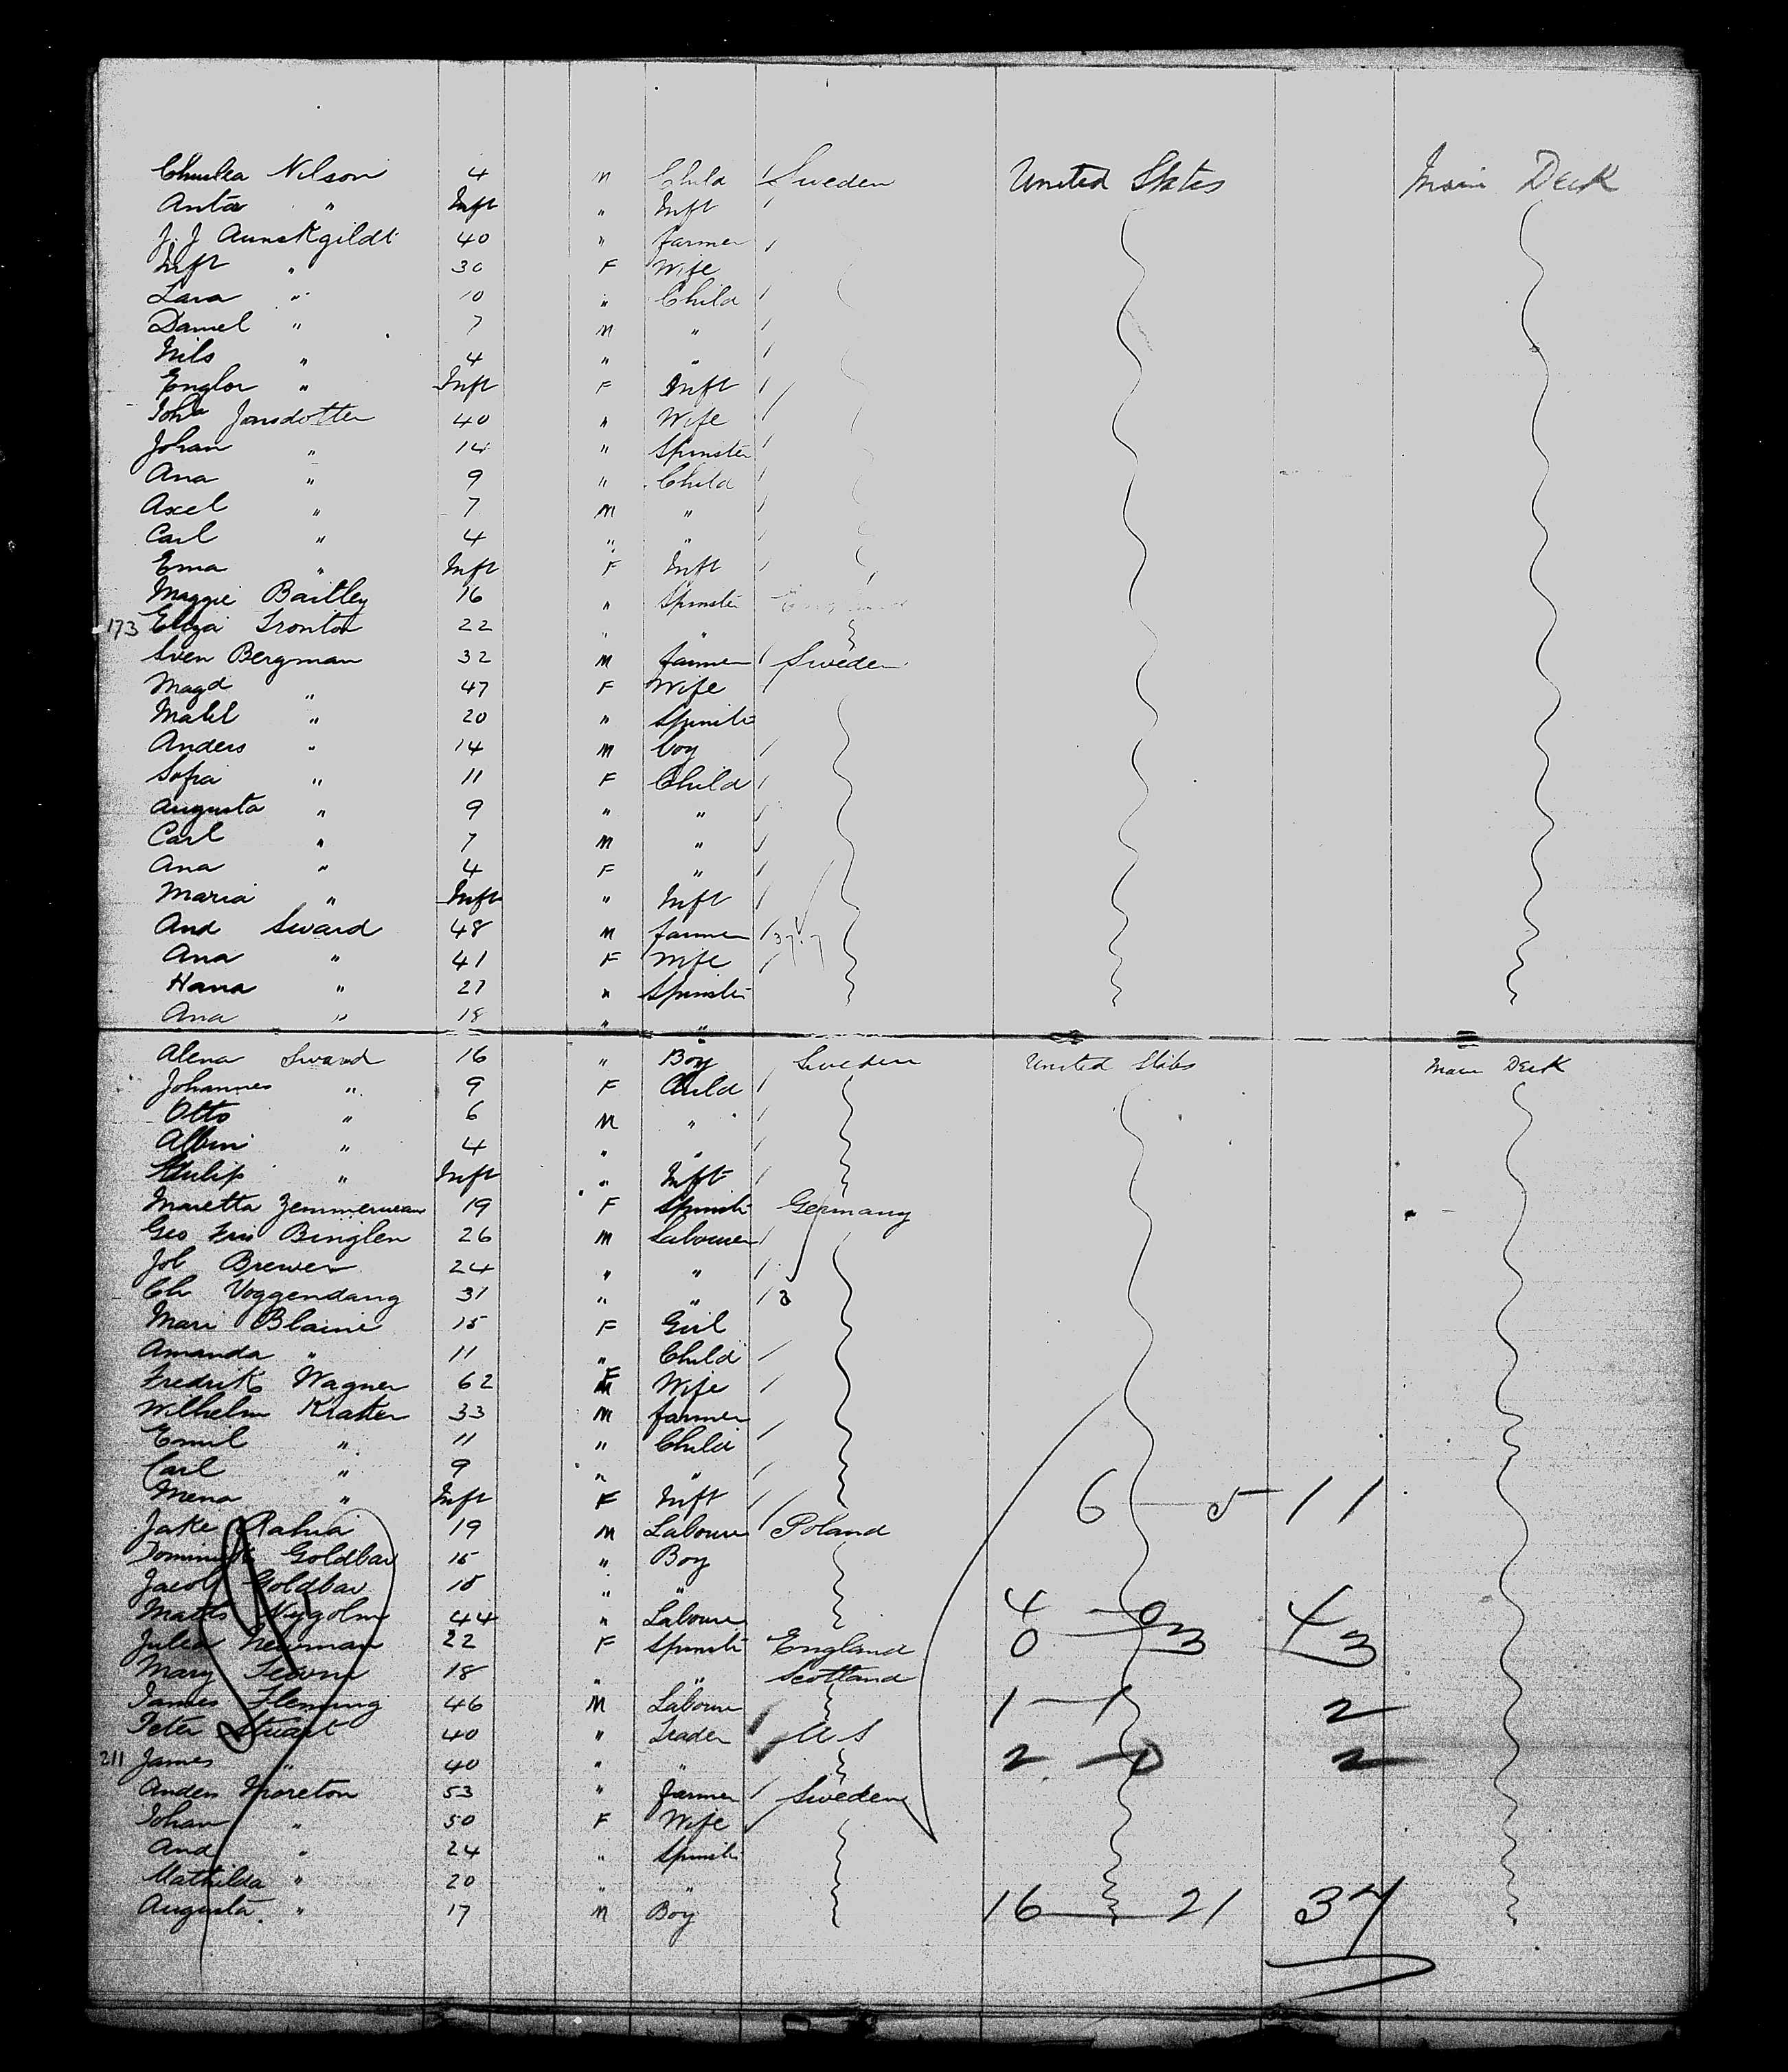 Nilson 4 M Child Sweden United States Main Deck
Anta " Inft " Inft
J. J 40 " farmer
" 30 F Wife
Lara " 10 " Child
Daniel " 7 M "
Nils " 4 " "
Englor " Inft F Inft
Joha Jonsdotter 40 " Wife
Johan " 14 " Spinster
Ana " 9 " Child
Axel " 7 M "
Carl " 4 " "
Ema " Inft F Inft
Maggie Bailley 16 " Spinster England
173 Eliza 22 " "
Sven Bergman 32 M farmer Sweden
Magd " 47 F Wife
" 20 " Spinster
Anders " 14 M boy
Sofia " 11 F Child
Augusta " 9 " "
Carl " 7 M "
Ana " 4 F "
Maria " Inft " Inft
And Sward 48 M farmer
Ana " 41 F Wife
Hana " 27 " Spinster
Ana " 18 " "
Alena Sward 16 " Boy Sweden United States Main Deck
Johannes " 9 F Child
Otto " 6 M "
Albin " 4 " "
" Inft " Inft
Maretta Zemmerman 19 F Spinster Germany
Geo Binglen 26 M Labourer
Job Brewer 24 " "
Ch Voggendang 31 " "
Mari Blaine 15 F Girl
Amanda " 11 " Child
Fredrik Wagner 62 F Wife
Wilhelm Kratter 33 M farmer
Emil " 11 " Child
Carl " 9 " "
Mena " Inft F Inft 6 — 5 — 11
Jake 19 M Labourer Poland
Goldbar 15 " Boy
Jacob Goldbar 15 " "
Matts Nygolm 44 " Labourer
Julia Newman 22 F Spinster England
Mary 18 " " Scotland
James Fleming 46 M Labourer 1 — 1 2
Peter Stuart 40 " U S
211 James " 40 " " 2 — 0 2
Anders Moreton 53 " farmer Sweden
Johan " 50 F Wife
And " 24 " Spinster
Mathilda " 20 " "
Augusta " 17 M Boy 16 — 21 37